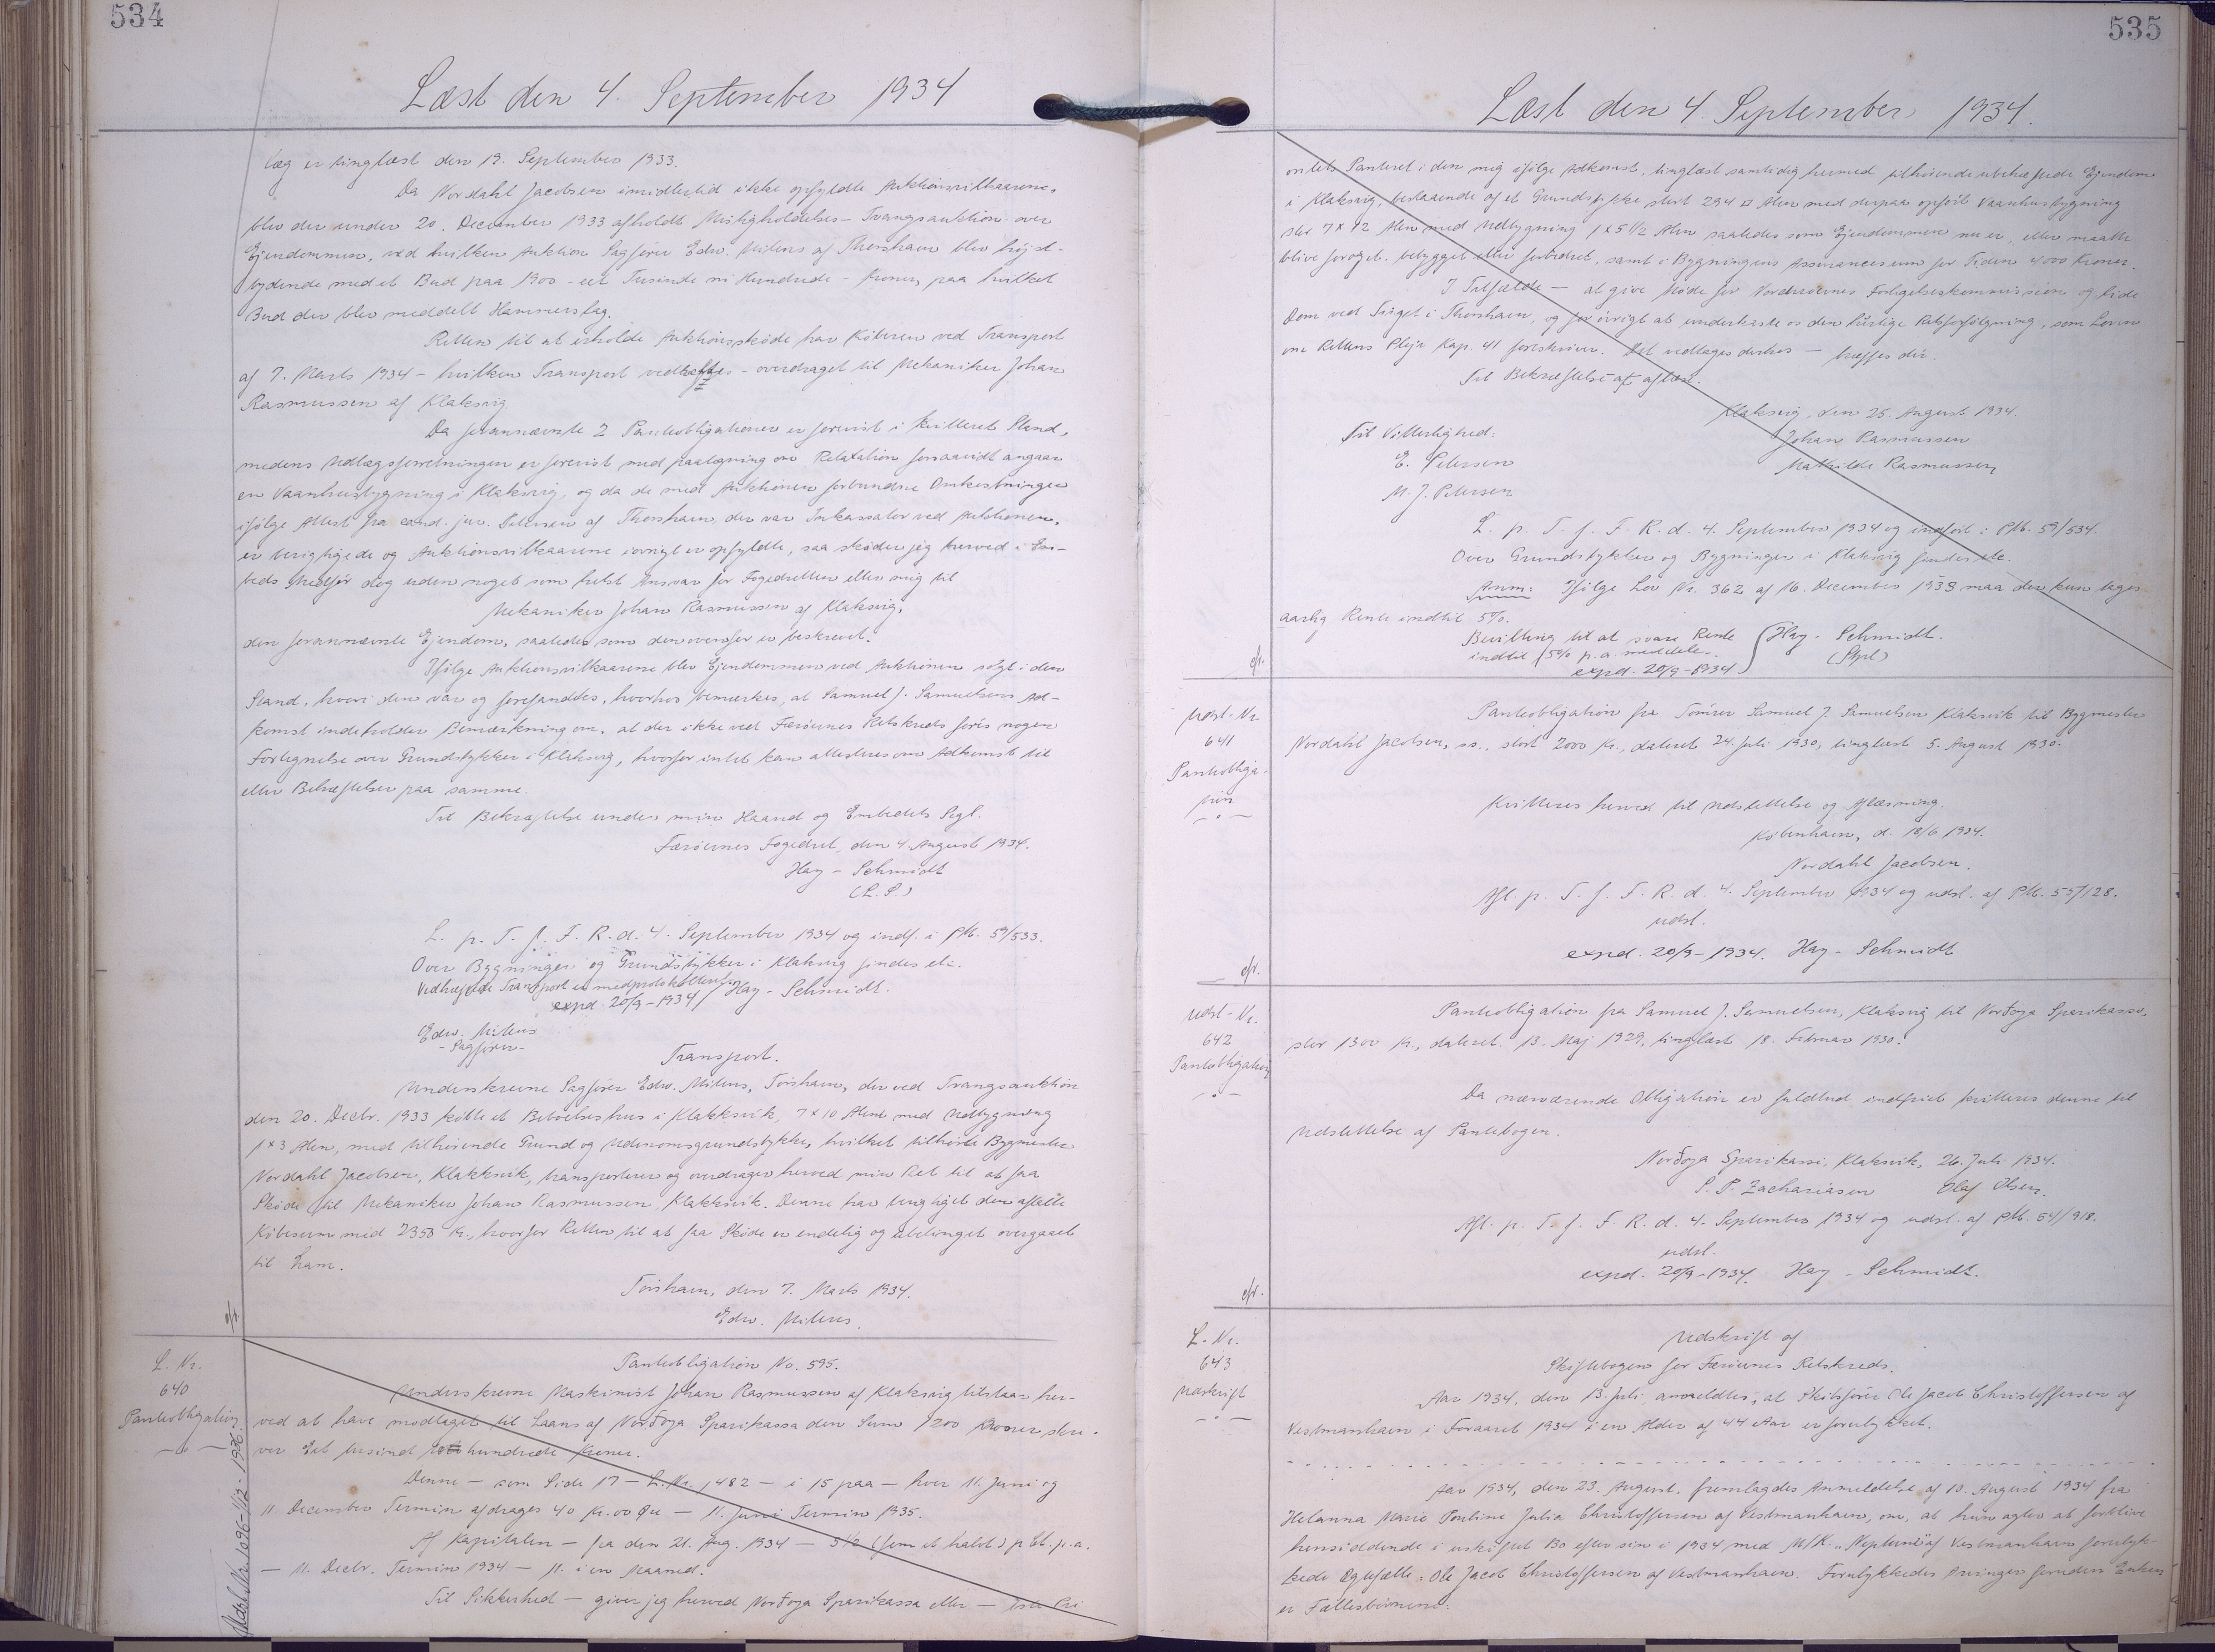 534
Læst den 4. September 1934
læg er tinglæst den 19. September 1933.
Da Nordahl Jacobsen imidlertid ikke opfyldte Auktionsvilkaarene,
blev der under 20. December 1933 afholdt Misligholdelses-Tvangsauktion over
Ejendommen, ved hvilken Auktion Sagfører Edw. Mitens af Thorshavn blev højst-
bydende med et Bud paa 1900 - eet Tusinde ni Hundrede - Kroner, paa hvilket
Bud der blev meddelt Hammerslag.
Retten til at erholde Auktionsskøde har Køberen ved Transport
af 7. Marts 1934 - hvilken Transport vedhæftes - overdraget til Mekaniker Johan
Rasmussen af Klaksvig.
Da forannævnte 2 Panteobligationer er forevist i kvitteret Stand,
medens Udlægsforretningen er forevist med paategning om Relaxation forsaavidt angaar
en Vaanhusbygning i Klaksvig, og da de med Auktionen forbundne Omkostninger
ifølge Attest fra cand. jur. Petersen af Thorshavn, der var Inkassator ved Auktionen,
er berigtigede og Auktionsvilkaarene iøvrigt er opfyldte, saa skøder jeg herved i Em-
beds Medfør dog uden noget som helst Ansvar for Fogedretten eller mig til
Mekaniker Johan Rasmussen af Klaksvig,
den forannævnte Ejendom, saaledes som den ovenfor er beskrevet.
Ifølge Auktionsvilkaarene blev Ejendommen ved Auktionen solgt i den
Stand, hvori den var og forefandtes, hvorhos bemærkes, at Samuel J. Samuelsens Ad-
komst indeholder Bemærkning om, at der ikke ved Færøernes Retskreds føres nogen
Fortegnelse over Grundstykker i Klaksvig, hvorfor intet kan attesteres om Adkomst til
eller Behæftelser paa samme.
Til Bekræftelse under min Haand og Embedets Segl.
Færøernes Fogedret, den 4. August 1934.
Hay - Schmidt
(L. S.)
L. p. T. f. F. R. d. 4. September 1934 og indf. i PM. 59/533.
Over Bygninger og Grundstykker i Klaksvig findes etc.
Vedhæftede Transport er medprotokolleret.
expd. 20/9-1934 Hay - Schmidt.
Edw. Mitens
- Sagfører -
Transport.
Underskrevne Sagfører Edw. Mitens, Tórshavn, der ved Tvangsauktion
den 20. Decbr. 1933 købte et Beboelseshus i Klakksvík, 7 x 10 Alen med Udbygning
1 x 3 Alen, med tilhørende Grund og Udenomsgrundstykke, hvilket tilhørte Bygmester
Nordahl Jacobsen, Klakksvík, transporterer og overdrager herved min Ret til at faa
Skøde til Mekaniker Johan Rasmussen, Klakksvík. Denne har berigtiget den aftalte
Købesum med 2350 Kr., hvorfor Retten til at faa Skøde er endelig og ubetinget overgaaet
til ham.
Tórshavn, den 7. Marts 1934.
Edw. Mitens.
L. Nr.
640
Panteobligation
Udsl. Nr. 1096-1/12-1936.
Panteobligation No. 595.
Underskrevne Maskinist Johan Rasmussen af Klaksvig tilstaar her-
ved at have modtaget til Laans af Norðoya Sparikassa den Sum 1200 Kroner skri-
ver Eet tusind hundrede Kroner.
Denne - som Side 17 - L. Nr. 1482 - i 15 paa - hver 11. Juni og
11. December Termin afdrages 40 Kr. 00 Øre - 11. Juni Termin 1935.
Af Kapitalen - fra den 21. Aug. 1934 - 5 1/2 (fem et halvt) p Ct. p.a.
- 11. Decbr. Termin 1934 - 11. i en Maaned.
Til Sikkerhed - giver jeg herved Norðoya Sparikassa eller - 1ste Pri
535
Læst den 4. September 1934.
oritets Panteret i den mig ifølge Adkomst, tinglæst samtidig hermed tilhørende ubehæftede Ejendom
i Klaksvig, bestaaende af et Grundstykke stort 294 □ Alen med derpaa opført Vaanhusbygning
stor 7 x 12 Alen med Udbygning 1 x 5 1/2 Alen saaledes som Ejendommen nu er, eller maatte
blive forøget, bebygget eller forbedret, samt i Bygningens Assurancesum for Tiden 4000 Kroner.
I Tilfælde - at give Møde for Norderøernes Forligelseskommission og lide
Dom ved Tinget i Thorshavn, og for øvrigt at underkaste os den hurtige Retsforfølgning, som Loven
om Rettens Pleje Kap. 41 foreskriver. Det vedlagte derhos - hæftes der.
Til Bekræftelse af aflæst.
Klaksvig, den 25. August 1934.
Til Vitterlighed: Johan Rasmussen
E. Petersen Mathilde Rasmussen
M. J. Petersen
L. p. T. f. F. R. d. 4. September 1934 og indført i PM. 59/534.
Over Grundstykker og Bygninger i Klaksvig findes etc.
Anm: Ifølge Lov Nr. 362 af 16. December 1933 maa der kun tages
aarlig Rente indtil 5%.
Bevilling til at svare Rente
indtil 5 1/2% p. a. meddeles. Hay - Schmidt.
expd. 20/9-1934
cfr.
Udsl - Nr.
641
Panteobliga-
tion
Panteobligation fra Tømrer Samuel J. Samuelsen Klaksvík til Bygmester
Nordahl Jacobsen, ss., stort 2000 Kr., dateret 24. Juli 1930, tinglæst 5. August 1930.
Kvitteres herved til Udslettelse og Aflæsning.
København, d. 18/6 1934.
Nordahl Jacobsen.
Afl. p. T. f. F. R. d. 4. September 1934 og udsl. af PM. 55/128.
udsl.
expd. 20/9-1934. Hay - Schmidt
cfr.
Udsl - Nr.
642
Panteobligation
Panteobligation fra Samuel J. Samuelsen, Klaksvig til Norðoya Sparikassa,
stor 1300 Kr., dateret 13. Maj 1929, tinglæst 18. Februar 1930.
Da nærværende Obligation er fuldtud indfriet kvitteres denne til
Udslettelse af Pantebogen.
Norðoya Sparikassi, Klaksvík, 26. Juli 1934.
S. P. Zachariasen Olaf Olsen.
Afl. p. T. f. F. R. d. 4. September 1934 og udsl. af PM. 54/918.
udsl.
expd. 20/9-1934. Hay - Schmidt.
cfr.
L. Nr.
643
Udskrift
Udskrift af
Skiftebogen for Færøernes Retskreds.
Aar 1934, den 13. Juli, anmeldtes, at Skibsfører Ole Jacob Christoffersen af
Vestmanhavn i Foraaret 1934 i en Alder af 44 Aar er forulykket.
Aar 1934, den 23. August, fremlagdes Anmeldelse af 10. August 1934 fra
Helanna Marie Pouline Julia Christoffersen af Vestmanhavn, om, at hun agter at forblive
hensiddende i uskiftet Bo efter sin i 1934 med M/K. "Neptun" af Vestmanhavn forulyk-
kede Ægtefælle: Ole Jacob Christoffersen af Vestmanhavn. Forulykkedes Arvinger foruden Enken
er Fællesbørnene: